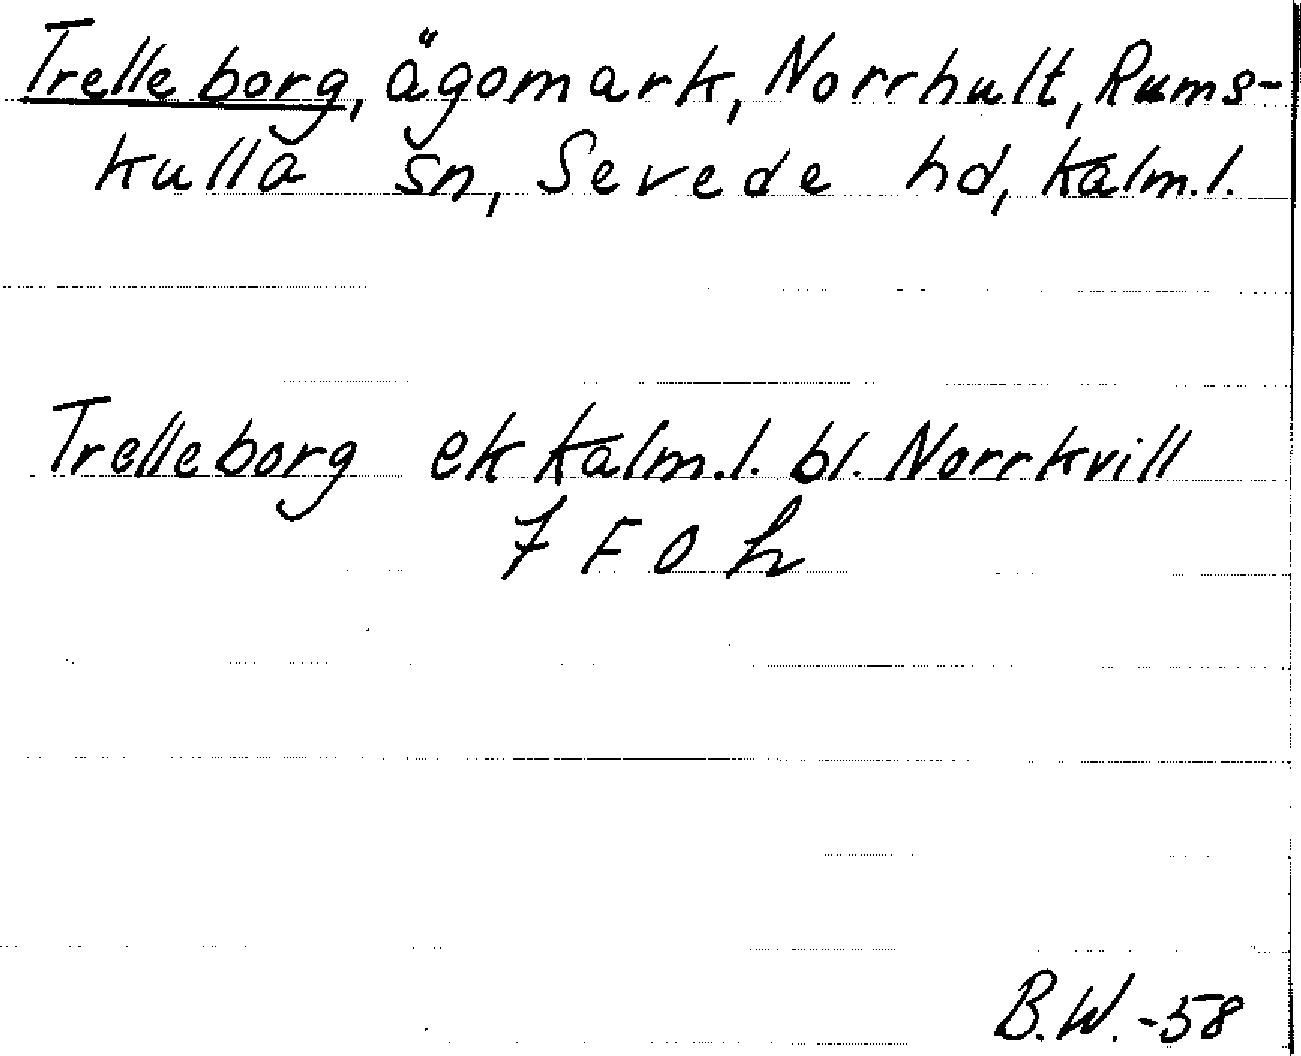 Trelleborg, ägomark, Norrhult, Rums-
kulla sn, Sevede hd, Kalm.l.
Trelleborg ek Kalm.l. bl. Norrkvill
7 F O h
B.W.-58